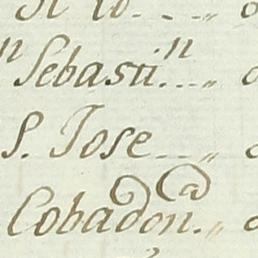 n Sebasti.n....„
S. Jose...„
Cobadon.a.„